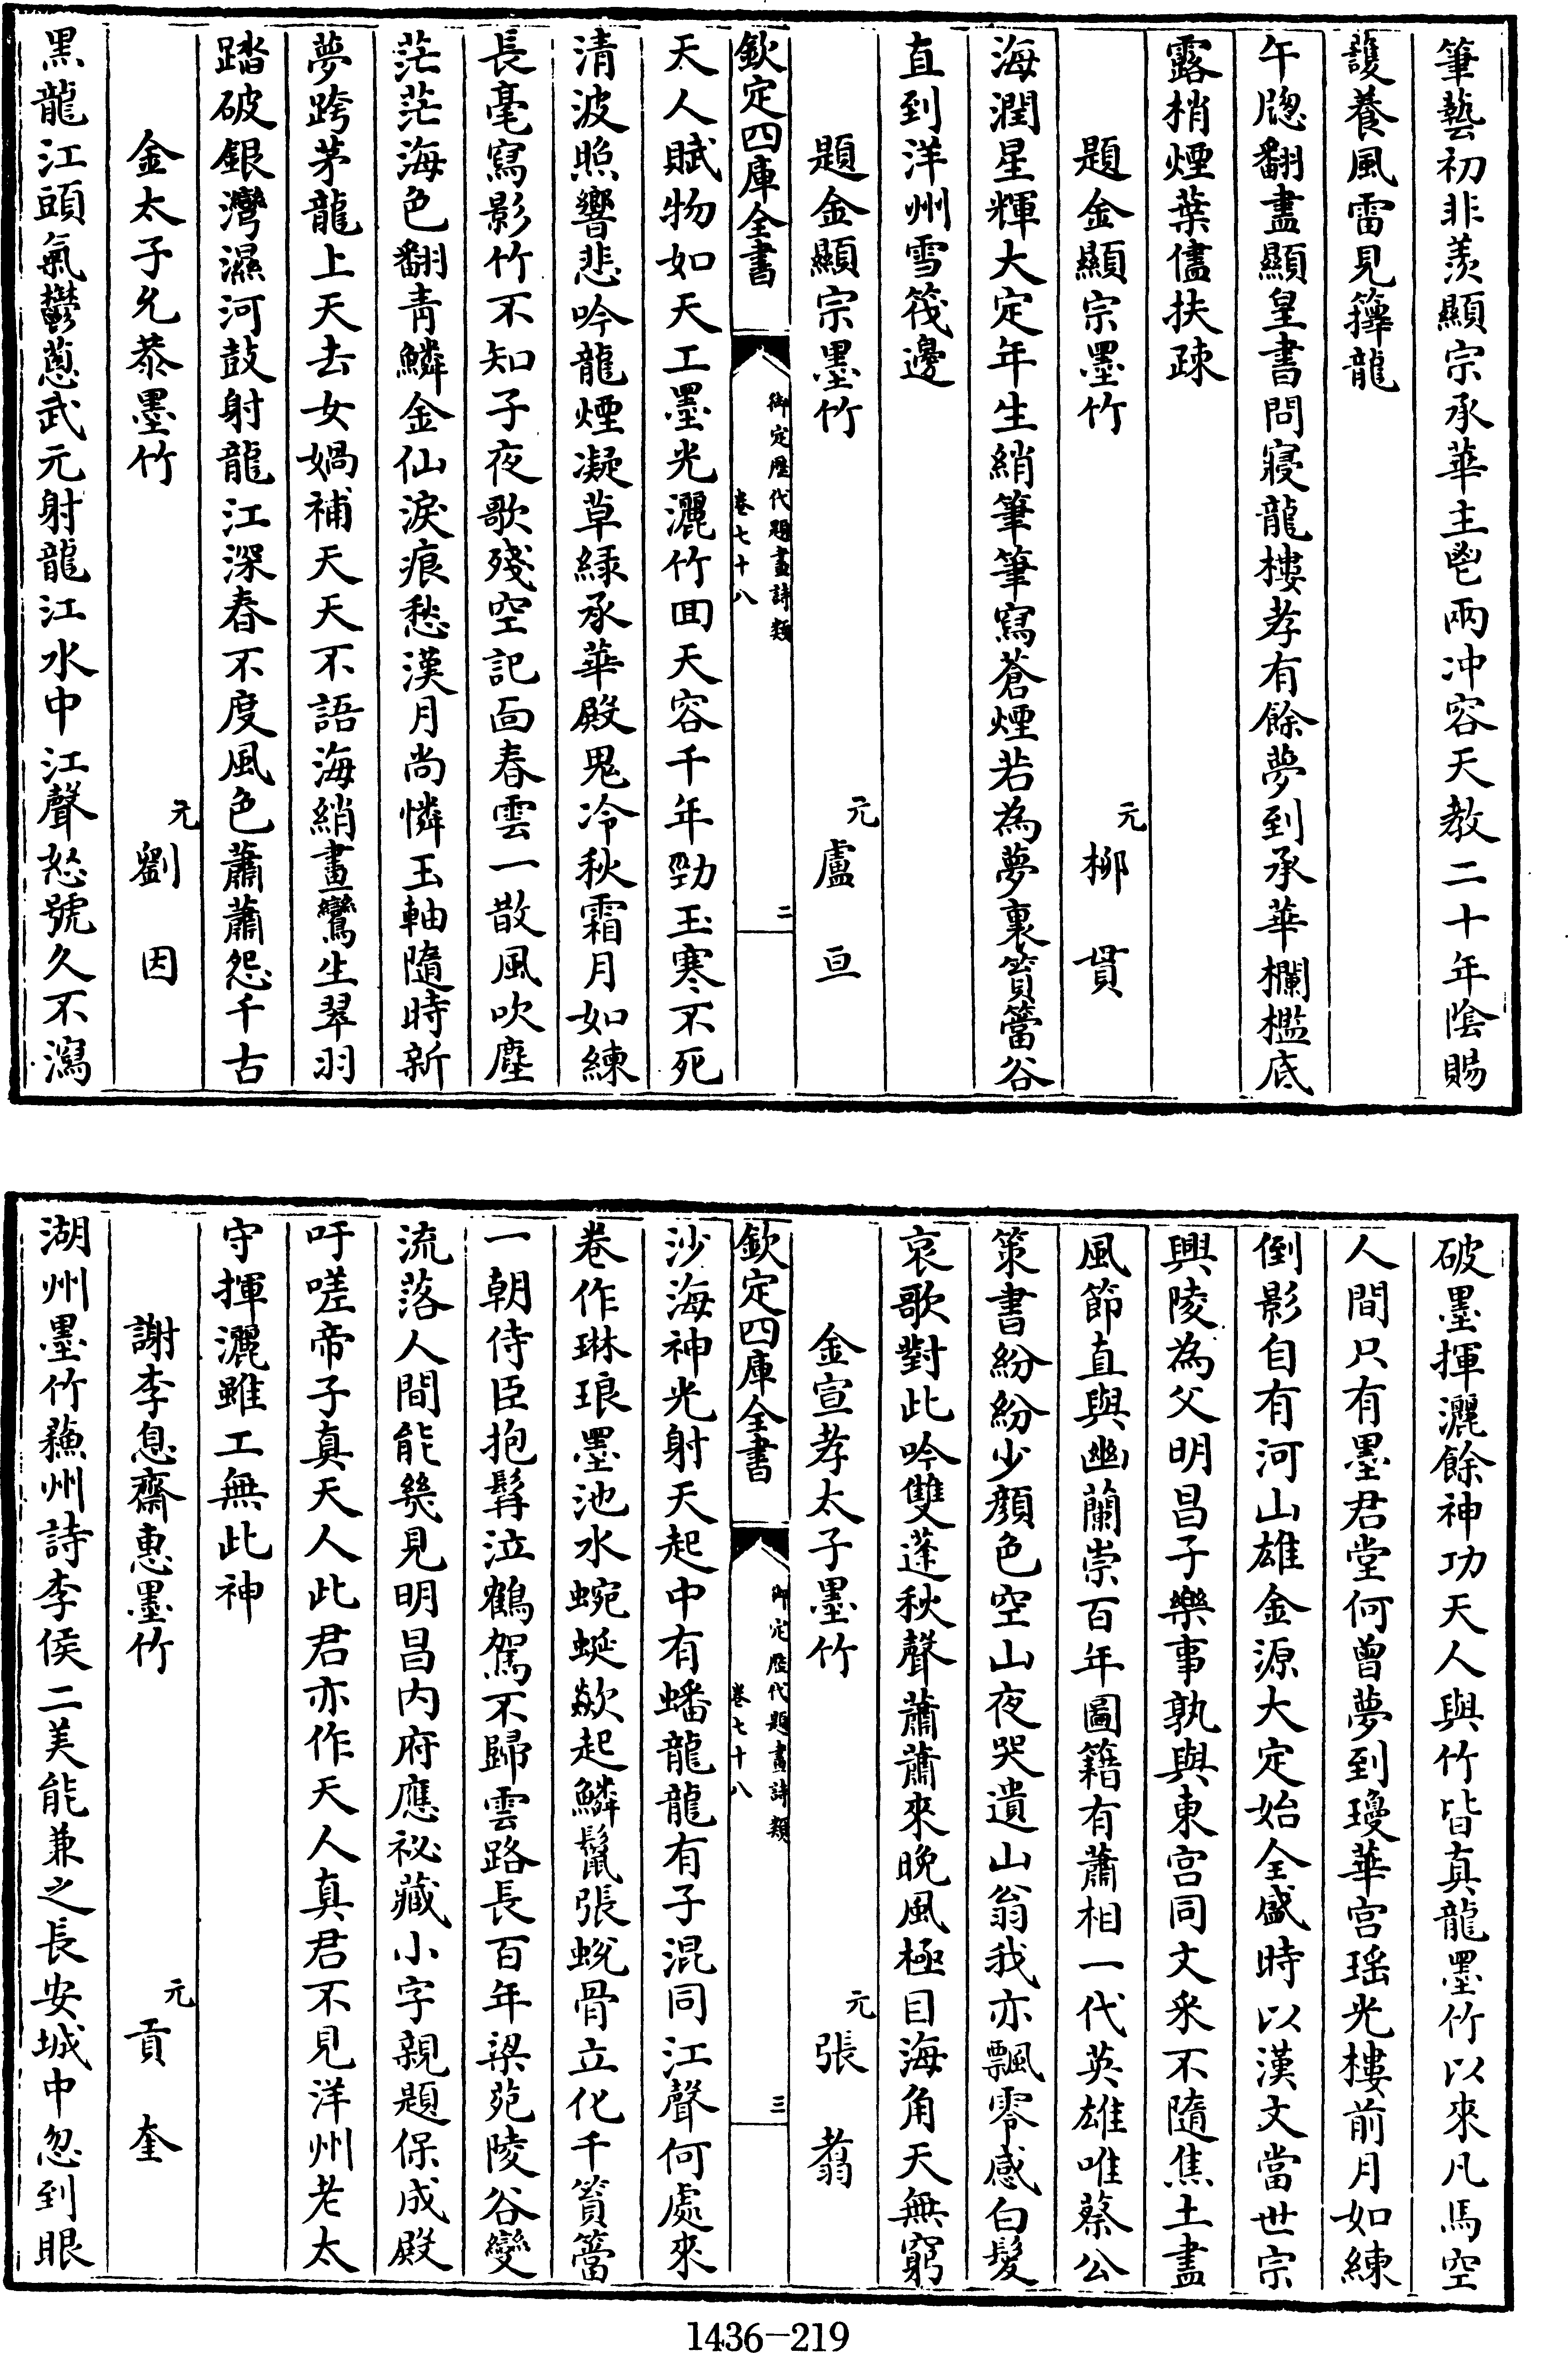 筆藝初非羨顯宗承華主鬯兩沖容天教二十年陰賜
護養風雷見籜龍
午牕翻盡顯皇書問寢龍樓孝有餘夢到承華欄檻底
露梢煙葉儘扶疎
題金顯宗墨竹 元 栁 貫
海潤星輝大定年生綃筆筆寫蒼煙若為夢裏篔簹谷
直到洋州雪筏邊
題金顯宗墨竹 元 盧 亘
欽定四庫全書 御定歷代題畫詩類 卷七十八 二
天人賦物如天工墨光灑竹回天容千年勁玉寒不死
清波照響悲吟龍煙凝草緑承華殿鬼冷秋霜月如練
長毫寫影竹不知子夜歌殘空記面春雲一散風吹塵
茫茫海色翻青鱗金仙淚痕愁漢月尚憐玉軸隨時新
夢跨茅龍上天去女媧補天天不語海綃畫鸞生翠羽
踏破銀灣濕河鼓射龍江深春不度風色蕭蕭怨千古
金太子允恭墨竹 元 劉 因
黑龍江頭氣鬱葱武元射龍江水中江聲怒號久不瀉
破墨揮灑餘神功天人與竹皆真龍墨竹以來凡馬空
人間只有墨君堂何曾夢到瓊華宫瑶光樓前月如練
倒影自有河山雄金源大定始全盛時以漢文當世宗
興陵為父明昌子樂事孰與東宫同文采不隨焦土盡
風節直與幽蘭崇百年圖籍有蕭相一代英雄唯蔡公
策書紛紛少顔色空山夜哭遺山翁我亦飄零感白髪
哀歌對此吟雙蓬秋聲蕭蕭來晚風極目海角天無窮
金宣孝太子墨竹 元 張 翥
欽定四庫全書 御定歷代題畫詩類 卷七十八 三
沙海神光射天起中有蟠龍龍有子混同江聲何處來
卷作琳琅墨池水蜿蜒歘起鱗鬛張蛻骨立化千篔簹
一朝侍臣抱髯泣鶴駕不歸雲路長百年梁苑陵谷變
流落人間能幾見明昌内府應祕藏小字親題保成殿
吁嗟帝子真天人此君亦作天人真君不見洋州老太
守揮灑雖工無此神
謝李息齋惠墨竹 元 貢 奎
湖州墨竹蘓州詩李侯二美能兼之長安城中忽到眼
1436-219